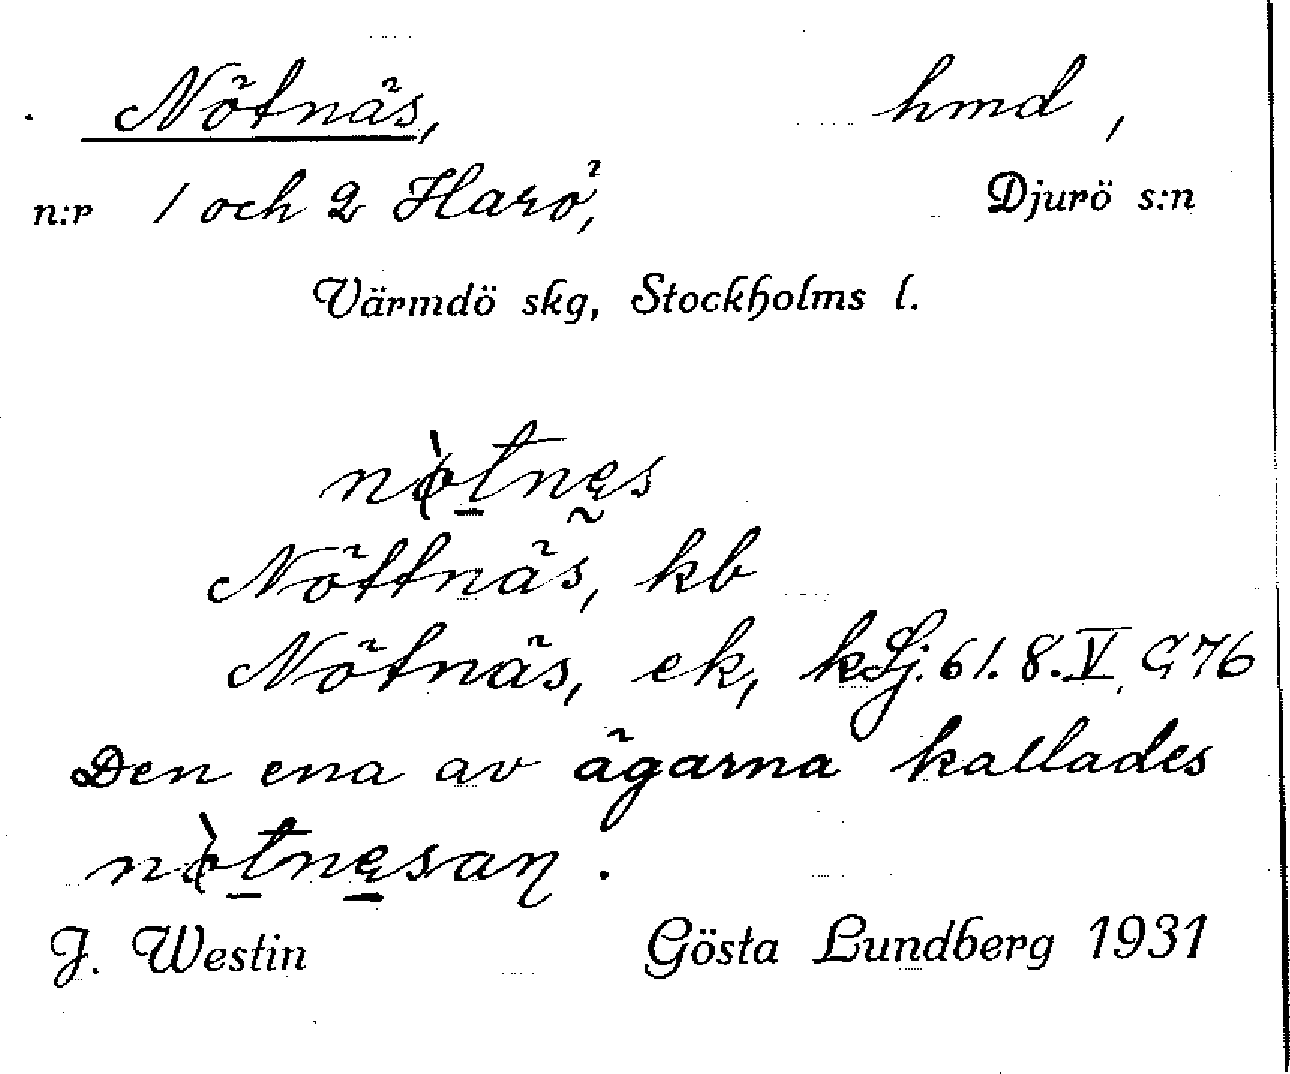 Nötnäs, hmd,
n:r 1 och 2 Harö, Djurö s:n
Värmdö skg, Stockholms l.
nø̀tnęs
Nöttnäs, kb
Nötnäs, ek, kLj. 61. 8. V, G 76
Den ena av ägarna kallades
nø̀tnęsaɳ.
J. Westin Gösta Lundberg 1931